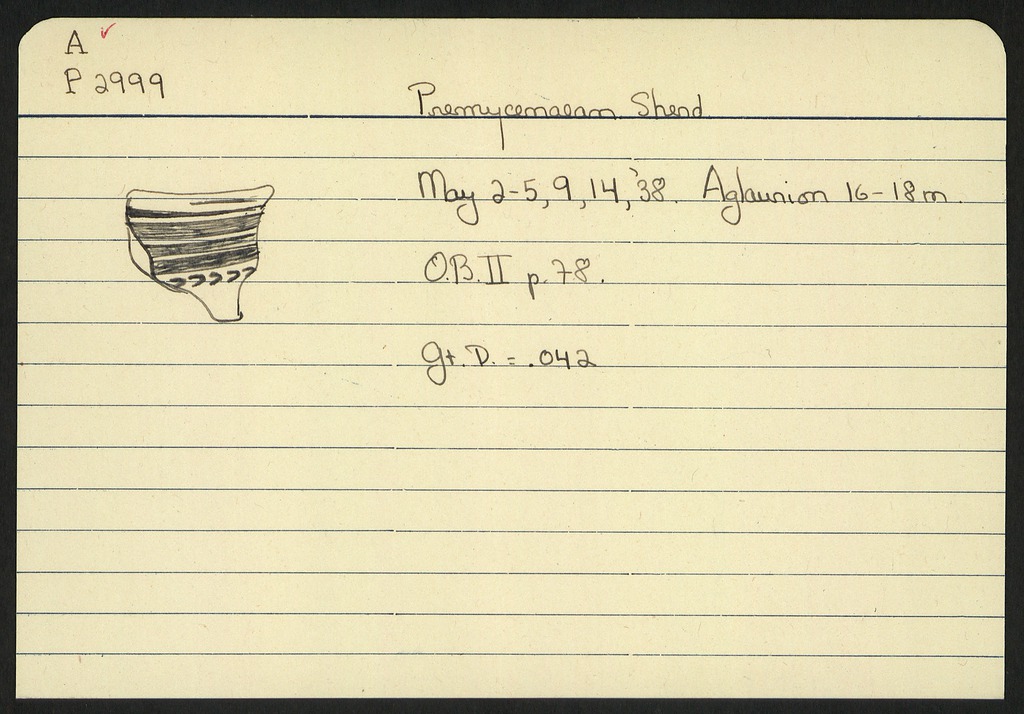 A
P 2999
Premycenaean Sherd
May 2-5, 9, 14, '38. Aglaurion 16-18m.
O.B. II p. 78.
Gt. D. = .042